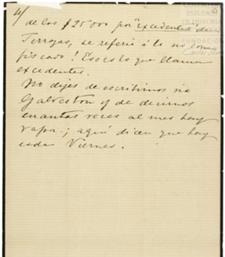 4/
de los $25000 por "excedentes de
Terrazas, se referia á lo no
fiscado. Eso es lo que llaman
excedentes.
No dejes de escribirnos via
Galveston y de decirnos
cuantas veces al mes hay
vapor; aquí dicen que hay
cada Viernes.